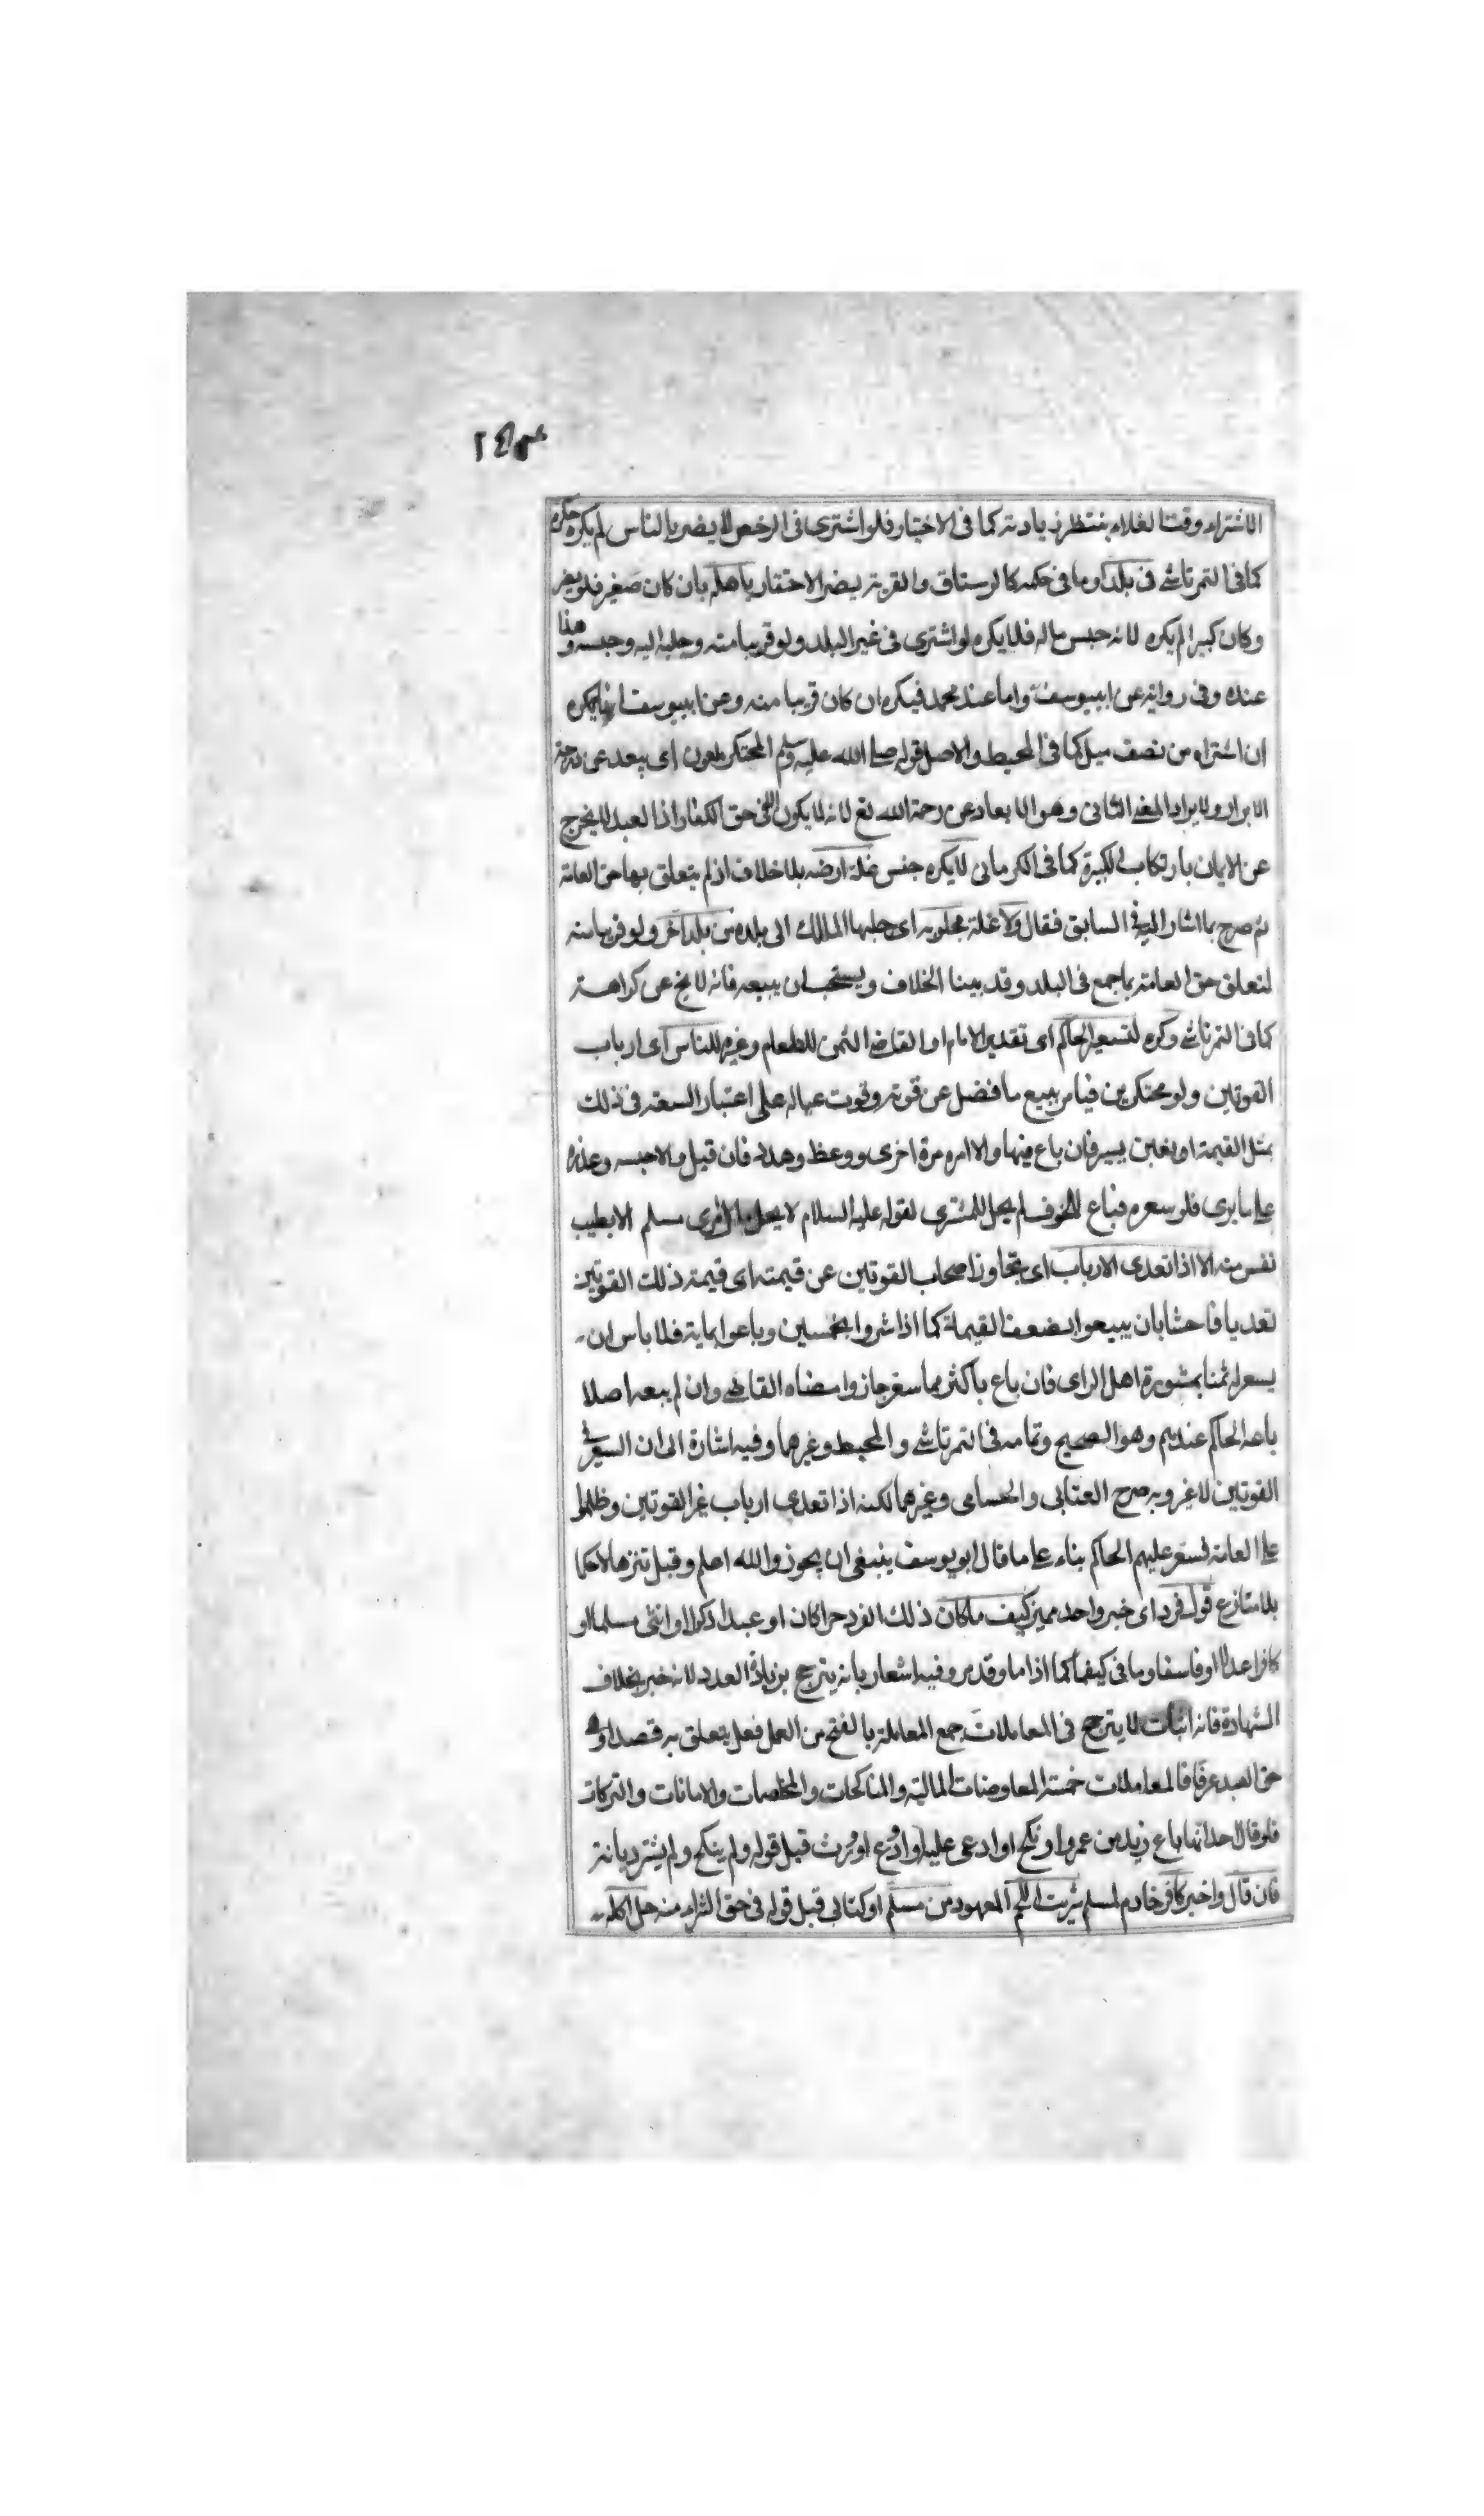 الاشتراء وقت الغلاء ينتظر زيادته كما فى الاختيار فلو اشترى فى الرخص لا يضر بالناس لم يكره حكره
كما فى التمرتاشى فى بلد او ما فى حكمه كالرستاق والقرية يضر الاحتقار باهله بان كان صغير فلو يضر
وكان كبيرا لم يكره لانه حبس ماله فلا يكره لو اشترى فى غير البلد ولو قريبا منه وجلبه اليه وحبسه وهذا
عنده وفى رواية عن ابى يوسف واما عند محمد فيكره ان كان قريبا منه وعن ابى يوسف انه يكره
ان اشتراه من نصف ميل كما فى المحيط والاصل قوله صلى الله عليه وسلم المحتكر ملعون اى يبعد عن درجة
الابرار ولا يراد المعنى الثانى وهو الابعاد عن رحمة الله تع لانه لا يكون الا فى حق الكفار اذ العبد لا يخرج
عن الايمان بارتكاب الكبيرة كما فى الكرمانى لا يكره حبس غلة ارضه بلا خلاف اذ لم يتعلق بها حق العامة
ثم صرح بما اشار اليه فى السابق فقال ولا غلة مجلوبه اى جلبها المالك الى بلده من بلد آخر ولو قريبا منه
لتعلق حق العامة بما جمع فى البلد وقد بينا الخلاف ويستحب ان يبيعه فانه لا يخ عن كراهة
كما فى التمرتاشى وكره تسعير الحاكم اى تقدير الامام او القاضى الثمن للطعام وغيره للناس اى ارباب
القوتين ولو محتكرين فيامر ببيع ما فضل عن قوته وقوت عياله على اعتبار السعة فى ذلك
بمثل القيمة او بغبن يسير فان باع فبها والا امره مرة اخرى ووعظ وهدد فان قبل والا حبسه وعذره
على ما يرى فلو سعره فباع للخوف لم يحل للمشترى لقوله عليه السلام لا يحل مال امرى مسلم الا بطيب
نفس منه الا اذا تعدى الارباب اى تجاوز اصحاب القوتين عن قيمته اى قيمة ذلك القوتين
تعديا فاحشا بان يبيعوا بضعف القيمة كما اذا شروا بخمسين وباعوا بماية فلا باس ان
يسعر له ثمنا بمشورة اهل الراى فان باع باكثر مما سعر جاز وامضاه القاضى وان لم يبعه اصلا
باعه الحاكم عندهم وهو الصحيح وتمامه فى التمرتاشى والمحيط وغيرهما وفيه اشارة الى ان السعر فى
القوتين لا غير وبه صرح العتابى والحسامى وغيرهما لكنه اذا تعدى ارباب غير القوتين وظلموا
على العامة فسعر عليهم الحاكم بناء على ما قال ابو يوسف ينبغى ان يجوز والله اعلم وقبل تنزها لا حكما
بلا منازع قول فرد اى خبر واحد مميز كيف ما كان ذلك الفرد حرا كان او عبدا ذكرا او انثى مسلما او
كافرا عدلا او فاسقا وما فى كيفما كما اذا ما وقد مر وفيه اشعار بانه يترجح بزيادة العدد لانه خبر بخلاف
الشهادة فانه اثبات لا يترجح فى المعاملات جمع المعاملة بالفتح من العمل فعل يتعلق به قصدا
حق العبد عرفا فالمعاملات خمسة المعاوضات المالية والمناكحات والمخاصمات والامانات والتركات
فلو قال احد انها باع زيد من عمرو او نكح او ادعى عليه او اودع او يرث قبل قوله ولم ينكح ولم يشتر ديانة
فان قال واخبر كافر خادم لمسلم شريت اللحم المعهود من مسلم او كتابى قبل قوله فى حق الشراء منه حل اكله